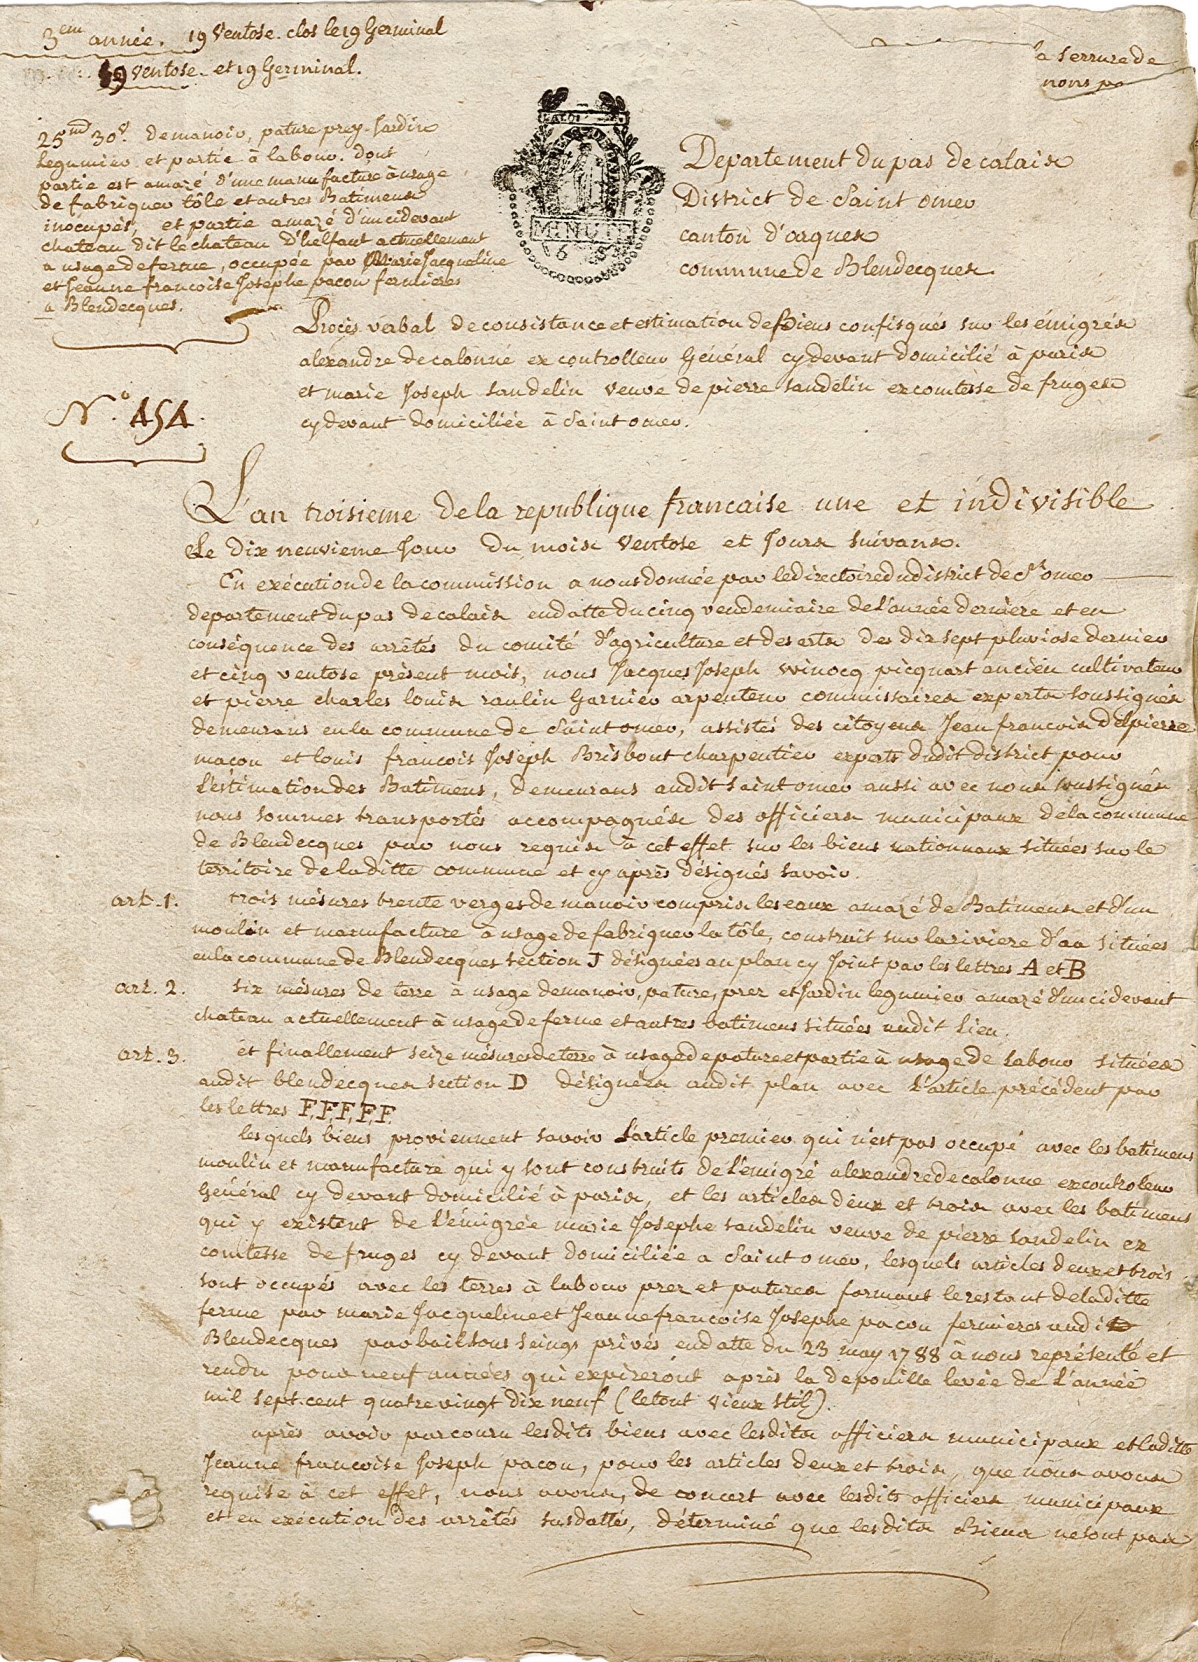 3em année. 19 Ventose. clos le 19 Germinal
19 ventose. et 19 Germinal.
la serrure de
nous po
25md 30v. de manoir, pature prey. Jardin
legumier et partie à labour. dont
partie est amazé d'une manufacture à usage
de fabriquer tôle et autres Batimens
inocupés, et partie amazé d'un cidevant
chateau dit le chateau d'helfaut actuellement
a usage de ferme, occupée par Marie Jacqueline
et Jeanne francoise Josephe pacou fermieres
a Blendecques.
MINUTE
Departement du pas de calais
District de Saint omer
canton d'arques
commune de Blendecques
Procès verbal de consistance et estimation des Biens confisqués sur les émigrés
alexandre de calonne ex controlleur Général cy devant domicilié à paris
et marie Joseph Sandelin veuve de pierre Sandelin ex comtesse de fruges
cy devant domiciliée à Saint omer.
N.o 454.
L'an troisieme de la republique francaise une et indivisible
Le dix neuvieme Jour du mois Ventose et Jours suivans.
En exécution de la commission a nous donnée par le directoire du district de St omer
departement du pas de calais en datte du cinq vendemiaire de l'année derniere et en
conséquence des arrêtés du comité d'agriculture et des arts des dix sept pluviose dernier
et cinq ventose présent mois, nous Jacques Joseph Winocq picquart ancien cultivateur
et pierre charles louis raulin Garnier arpenteur commissaires experts soussignés
demeurans en la commune de Saint omer, assistés des citoyens Jean francois Delpierre
macon et louis francois Joseph Brisbout charpentier experts dudit district pour
l'estimation des Batimens, demeurans audit Saint omer aussi avec nous soussignés
nous sommes transportés accompagnés des officiers municipaux de la commune
de Blendecques par nous requis à cet effet sur les biens nationnaux situées sur le
territoire de la ditte commune et cy après désignés savoir.
art. 1. trois mésures trente verges de manoir compris les eaux amazé de Batimens et d'un
moulin et manufacture à usage de fabriquer la tôle, construit sur la riviere d'aa situées
en la commune de Blendecques section J désignées au plan cy Joint par les lettres A et B
art. 2. six mésures de terre à usage de manoir, pature, prez et Jardin legumier amazé d'un cidevant
chateau actuellement à usage de ferme et autres batimens situées audit Lieu.
art. 3. et finallement seize mésures de terre à usage de pature et partie à usage de labour situées
audit blendecques section D désignées audit plan avec l'article précédent par
les lettres F,F,F,F,F,
lesquels biens proviennent savoir l'article premier qui n'est pas occupé avec les batimens
moulin et manufacture qui y sont construits de l'émigré alexandre de calonne ex controleur
Général cy devant domicilié à paris, et les articles deux et trois avec les batimens
qui y existent de l'émigrée marie Josephe Sandelin veuve de pierre Sandelin ex
comtesse de fruges cy devant domiciliée a Saint omer, lesquels articles deux et trois
sont occupés avec les terres à labour prez et patures formant le restant de laditte
ferme par marie Jacqueline et Jeanne francoise Josephe pacou fermieres audit
Blendecques par bail sous seings privés en datte du 23 may 1788 à nous représenté et
rendu pour neuf années qui expireront après la depouille levée de l'année
mil sept cent quatre vingt dix neuf (le tout vieux stil).
après avoir parcouru lesdits biens avec lesdits officiers municipaux et laditte
Jeanne francoise Joseph pacou, pour les articles deux et trois, que nous avons
requise à cet effet, nous avons, de concert avec lesdits officiers municipaux
et en exécution des arrêtés susdattés, déterminé que lesdits Biens ne sont pas